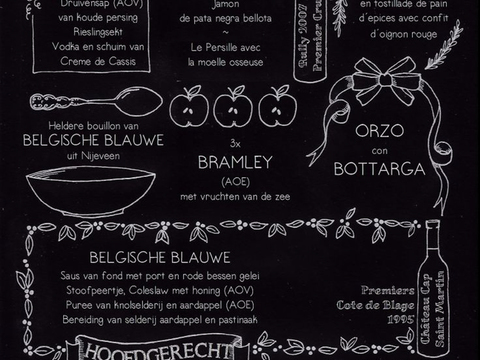 Druivensap (AOV)
van koude persing
Rieslingsekt
Vodka en schuim van
Creme de Cassis
Jamon
de pata negra bellota
~
Le Persille avec
la moelle osseuse
Rully 2007
Premier Cru
en tostillade de pain
d'epices avec confit
d'oignon rouge
Heldere bouillon van
BELGISCHE BLAUWE
uit Nijeveen
3x
BRAMLEY
(AOE)
met vruchten van de zee
ORZO
con
BOTTARGA
BELGISCHE BLAUWE
Saus van fond met port en rode bessen gelei
Stoofpeertje, Coleslaw met honing (AOV)
Puree van knolselderij en aardappel (AOE)
Bereiding van selderij aardappel en pastinaak
Premiers
Cote de Blage
1995
Château Cap
Saint Martin
HOOFDGERECHT